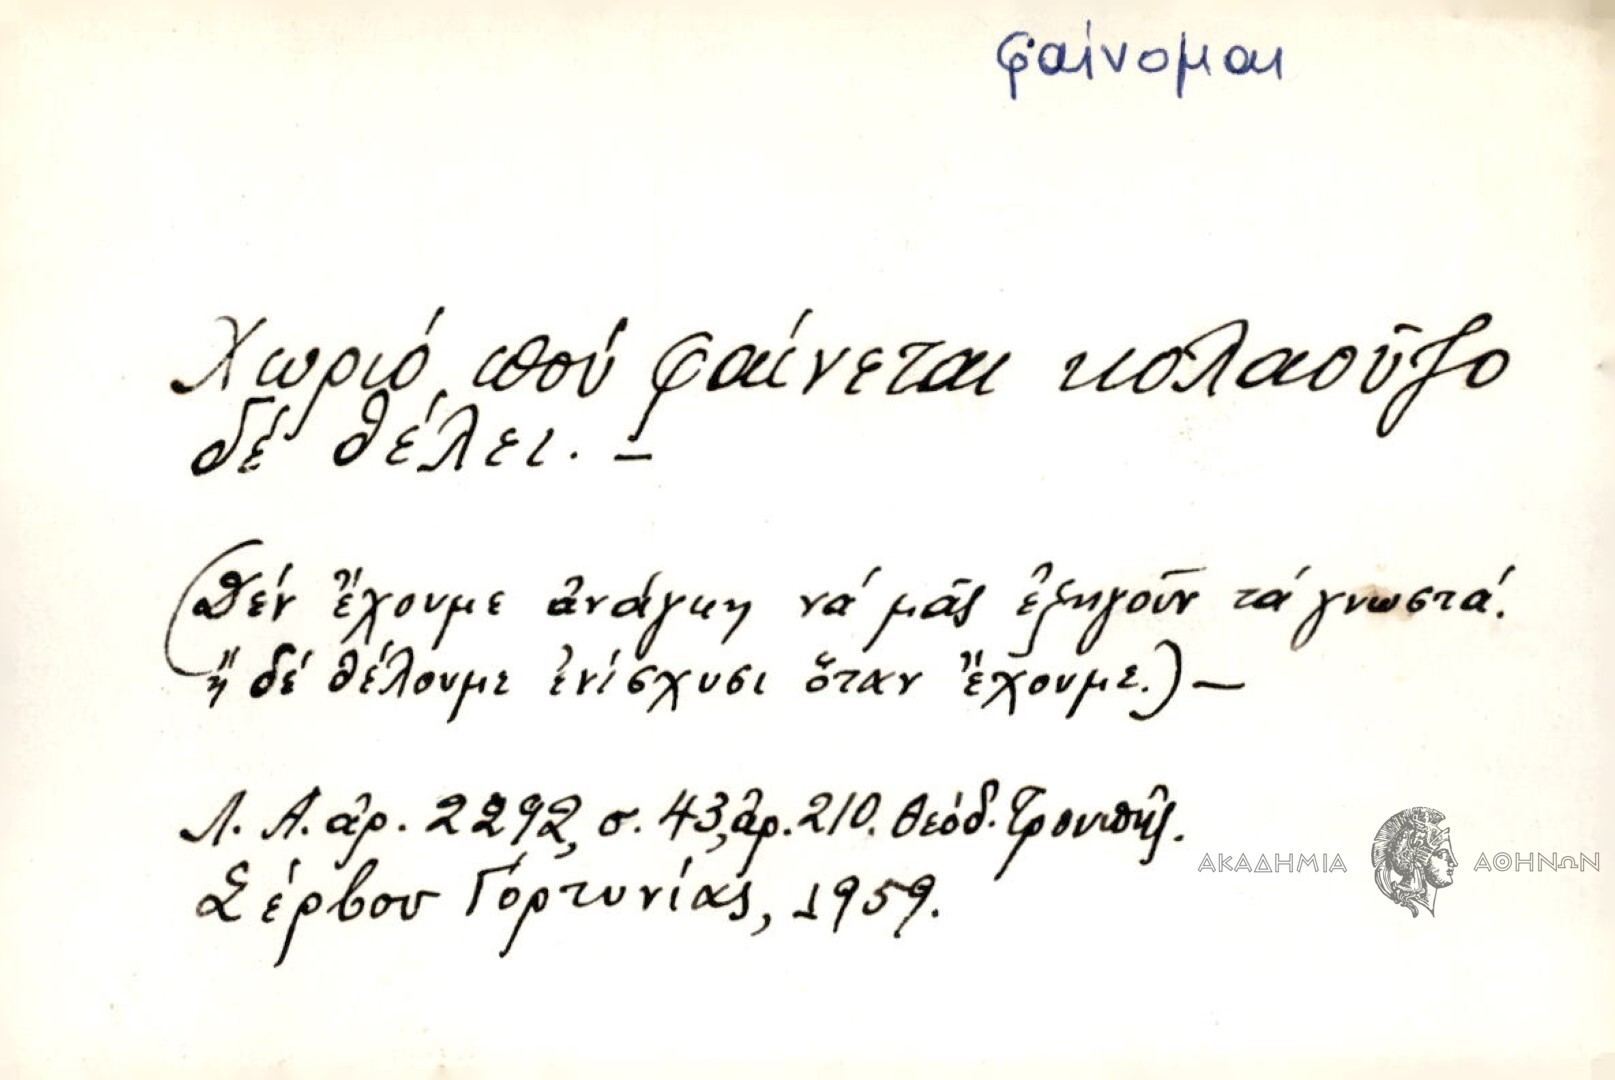 φαίνομαι
Χωριό, πού φαίνεται κολαοῦζο
δέ θέλει. –
(Δέν ἔχουμε ἀνάγκη νά μᾶς ἐξηγοῦν τά γνωστά.
ἤ δέ θέλουμε ἐνίσχυσι ὅταν ἔχουμε.) –
Λ. Α. ἀρ. 2292, σ. 43, ἀρ. 210. Θεόδ. Τρουπῆς.
Σέρβου Γόρτυνίας, 1959.
ΑΚΑΔΗΜΙΑ ΑΘΗΝΩΝ